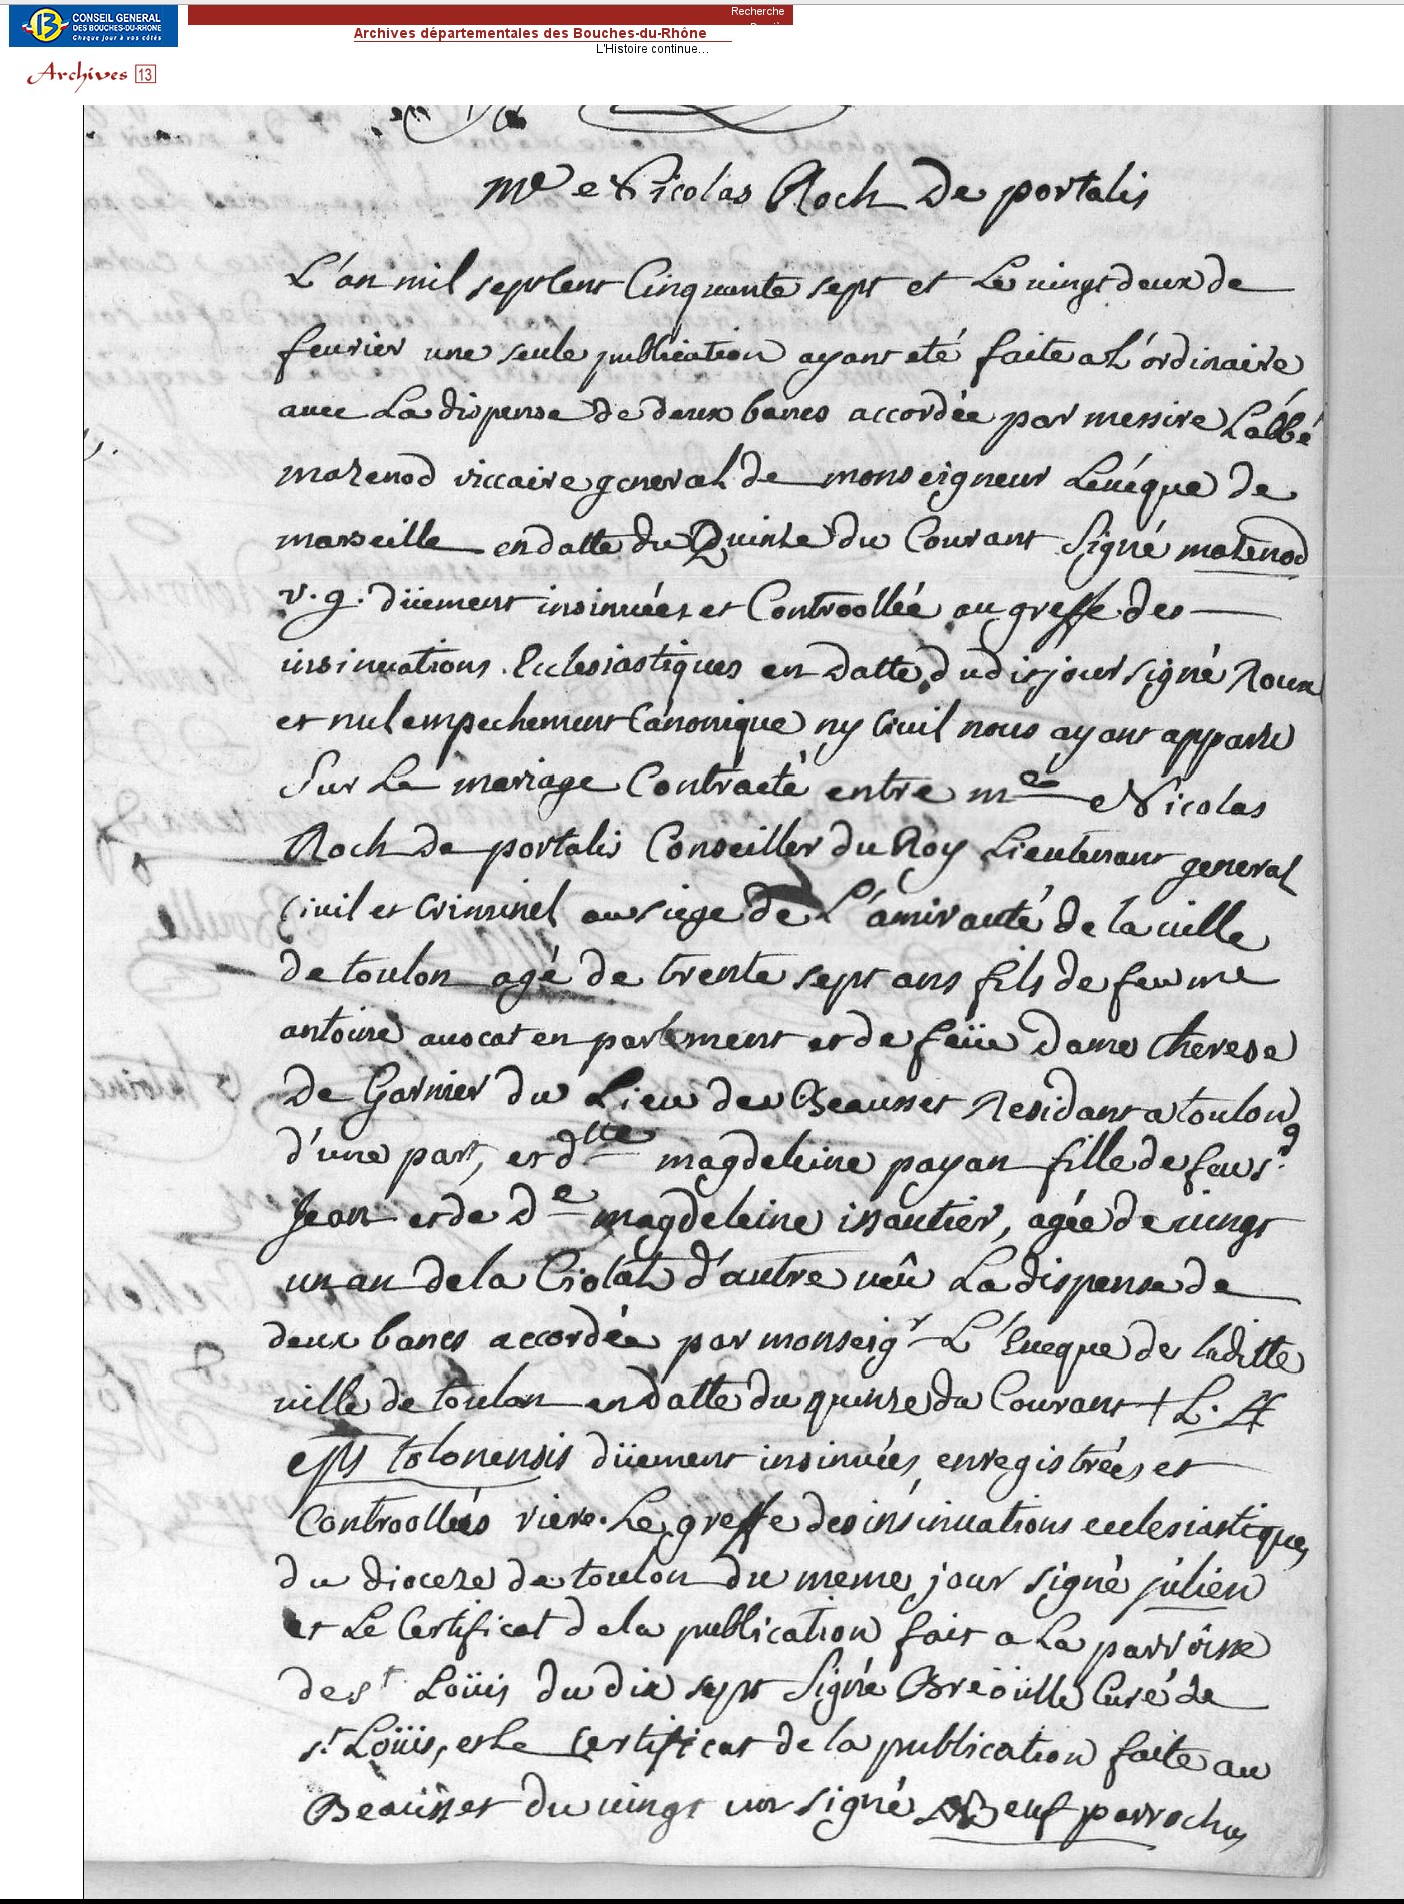 CONSEIL GENERAL
DES BOUCHES-DU-RHONE
Chaque jour à vos côtés
Recherche
Archives départementales des Bouches-du-Rhône
L'Histoire continue...
Archives 13
me Nicolas Roch De portalis
L'an mil sept cent Cinquante sept et Le vingt deux de
feurier une seule publication ayant eté faite a L'ordinaire
auec La dispense de deux bancs accordée par messire L'abbé
mazenod viccaire general de monseigneur Leuéque de
marseille en datte du Quinze du Courant Signé mazenod
v. g. düement insinuées et Controollée au greffe des
insinuations Ecclesiastiques en datte dudit jour signé Roux
et nul empechement Canonique ny Ciuil nous ayant apparu
Sur Le mariage Contracté entre me Nicolas
Roch De portalis Conseiller du Roy Lieutenant general
Ciuil et Criminel au siege de L'amirauté de la uille
de toulon agé de trente sept ans fils de feu me
antoine auocat en parlement et de feüe dame therese
de Garnier du Lieu du Beausset Residant a toulon
d'une part, et dlle magdeleine payan fille de feu sr
Jean et de de magdeleine issautier, agée de uingt
un an de la Ciotat d'autre ueû La dispense de
deux bancs accordée par monseigr L'Eueque de laditte
uille de toulon en datte du quinze du Courant + L. A
eps tolonensis düement insinuées, enregistrées et
Controollées riere Le greffe des insinuations ecclesiastiques
du dioceze de toulon du meme jour signé julien
et Le Certificat de la publication fait a La parroisse
de st Loüis du dix sept Signé Breoüille Curé de
st Loüis, et Le Certificat de la publication faite au
Beausset du uingt un signé Beuf parrochus